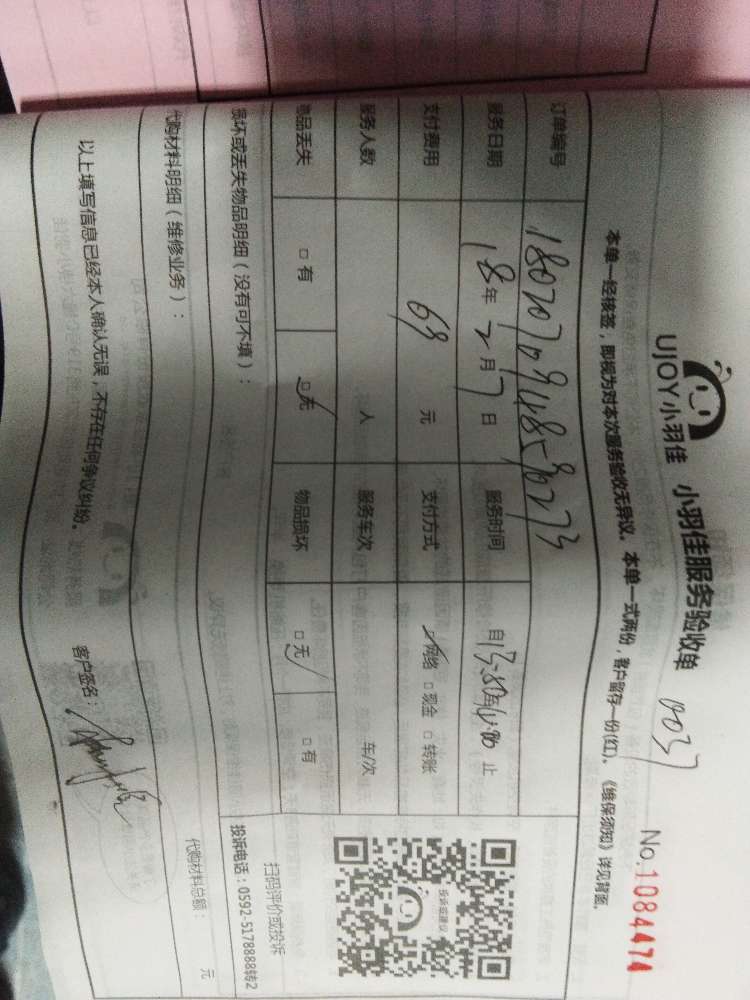 UJOY小羽佳 小羽佳服务验收单 0037
No.1084474
本单一经核签，即视为对本次服务验收无异议。本单一式两份，客户留存一份(红)。《维保须知》详见背面。
订单编号
服务日期 18年 2月 7日 服务时间 自13:50至 止
支付费用 69 元 支付方式 网络 □现金 □转账
服务人数 人 服务车次 车/次
物品丢失 □有 □无 物品损坏 □无 □有
损坏或丢失物品明细（没有可不填）：
投诉或建议
扫码评价或投诉
投诉电话：0592-5178888转2
代购材料明细（维修业务）：
代购材料总额： 元
以上填写信息已经本人确认无误，不存在任何争议纠纷。
客户签名：